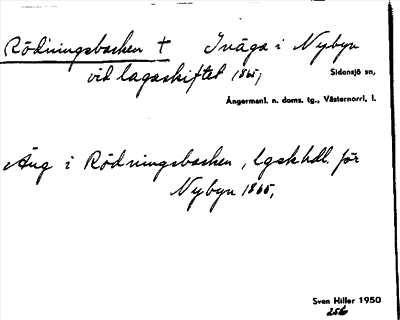 Rödningsbacken † Inäga i Nybyn
vid lagaskiftet 1865;
Sidensjö sn,
Ångermanl. n. doms. tg., Västernorrl. l.
Äng i Rödningsbacken, lgskhdl. för
Nybyn 1865,
Sven Hiller 1950
256